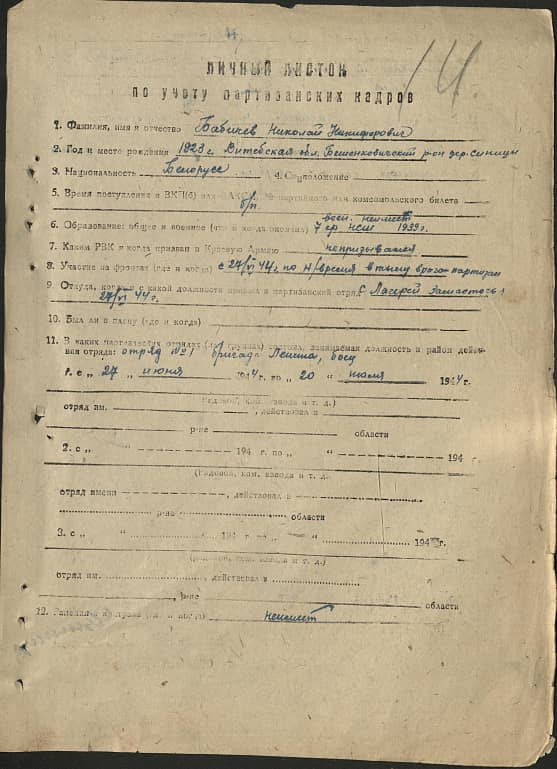 14.
ЛИЧНЫЙ ЛИСТОК
по учету партизанских кадров
1. Фамилия, имя и отчество Бабичев Николай Никифорович
2. Год и место рождения 1923 г. Витебская обл. Бешенковичский р-он дер. Синицы
3. Национальность Белорусс 4. Соцположение
5. Время поступления в ВКП(б) или партийного или комсомольского билета
б/п.
воен. не имеет
6. Образование: общее и военное (что и когда окончил) 7 гр. нсш 1939 г.
7. Каким РВК и когда призван в Красную Армию непризывался
8. Участие на фронтах (где и когда) с 27/VI 44 г. по н/время в тылу врага партизан
9. Откуда, когда и с какой должности прибыл в партизанский отряд С Лагерей
27/VI 44 г.
10. Был ли в плену (где и когда)
11. В каких партизанских отрядах состоял, занимаемая должность и район дейст-
вия отряда: отряд №1 бригада Ленина, боец
1. с „ 27 „ июня 1944 г. по „ 20 „ июля 1944 г.
(Рядовой, ком. взвода и т. д.)
отряд им. , действовал в
р-не области
2. с „ “ 194 г. по „ “ 194 г.
(Рядовой, ком. взвода и т. д.)
отряд имени , действовал в
р-не области
3. с „ “ 194 г. по „ “ 194 г.
(рядовой, ком. взвода и т. д.)
отряд им. , действовал в
, р-не области
12. (где и когда) неимеет